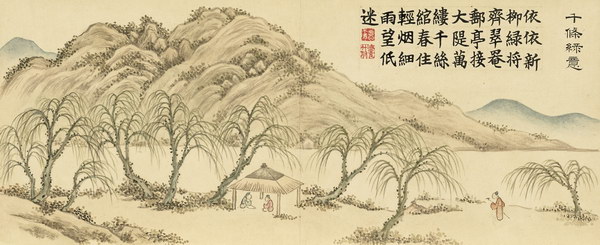 千條綠意
依依新
柳綠將
齊翠罨
郵亭接
大隄萬
縷千絲
綰春住
輕烟細
雨望低
迷